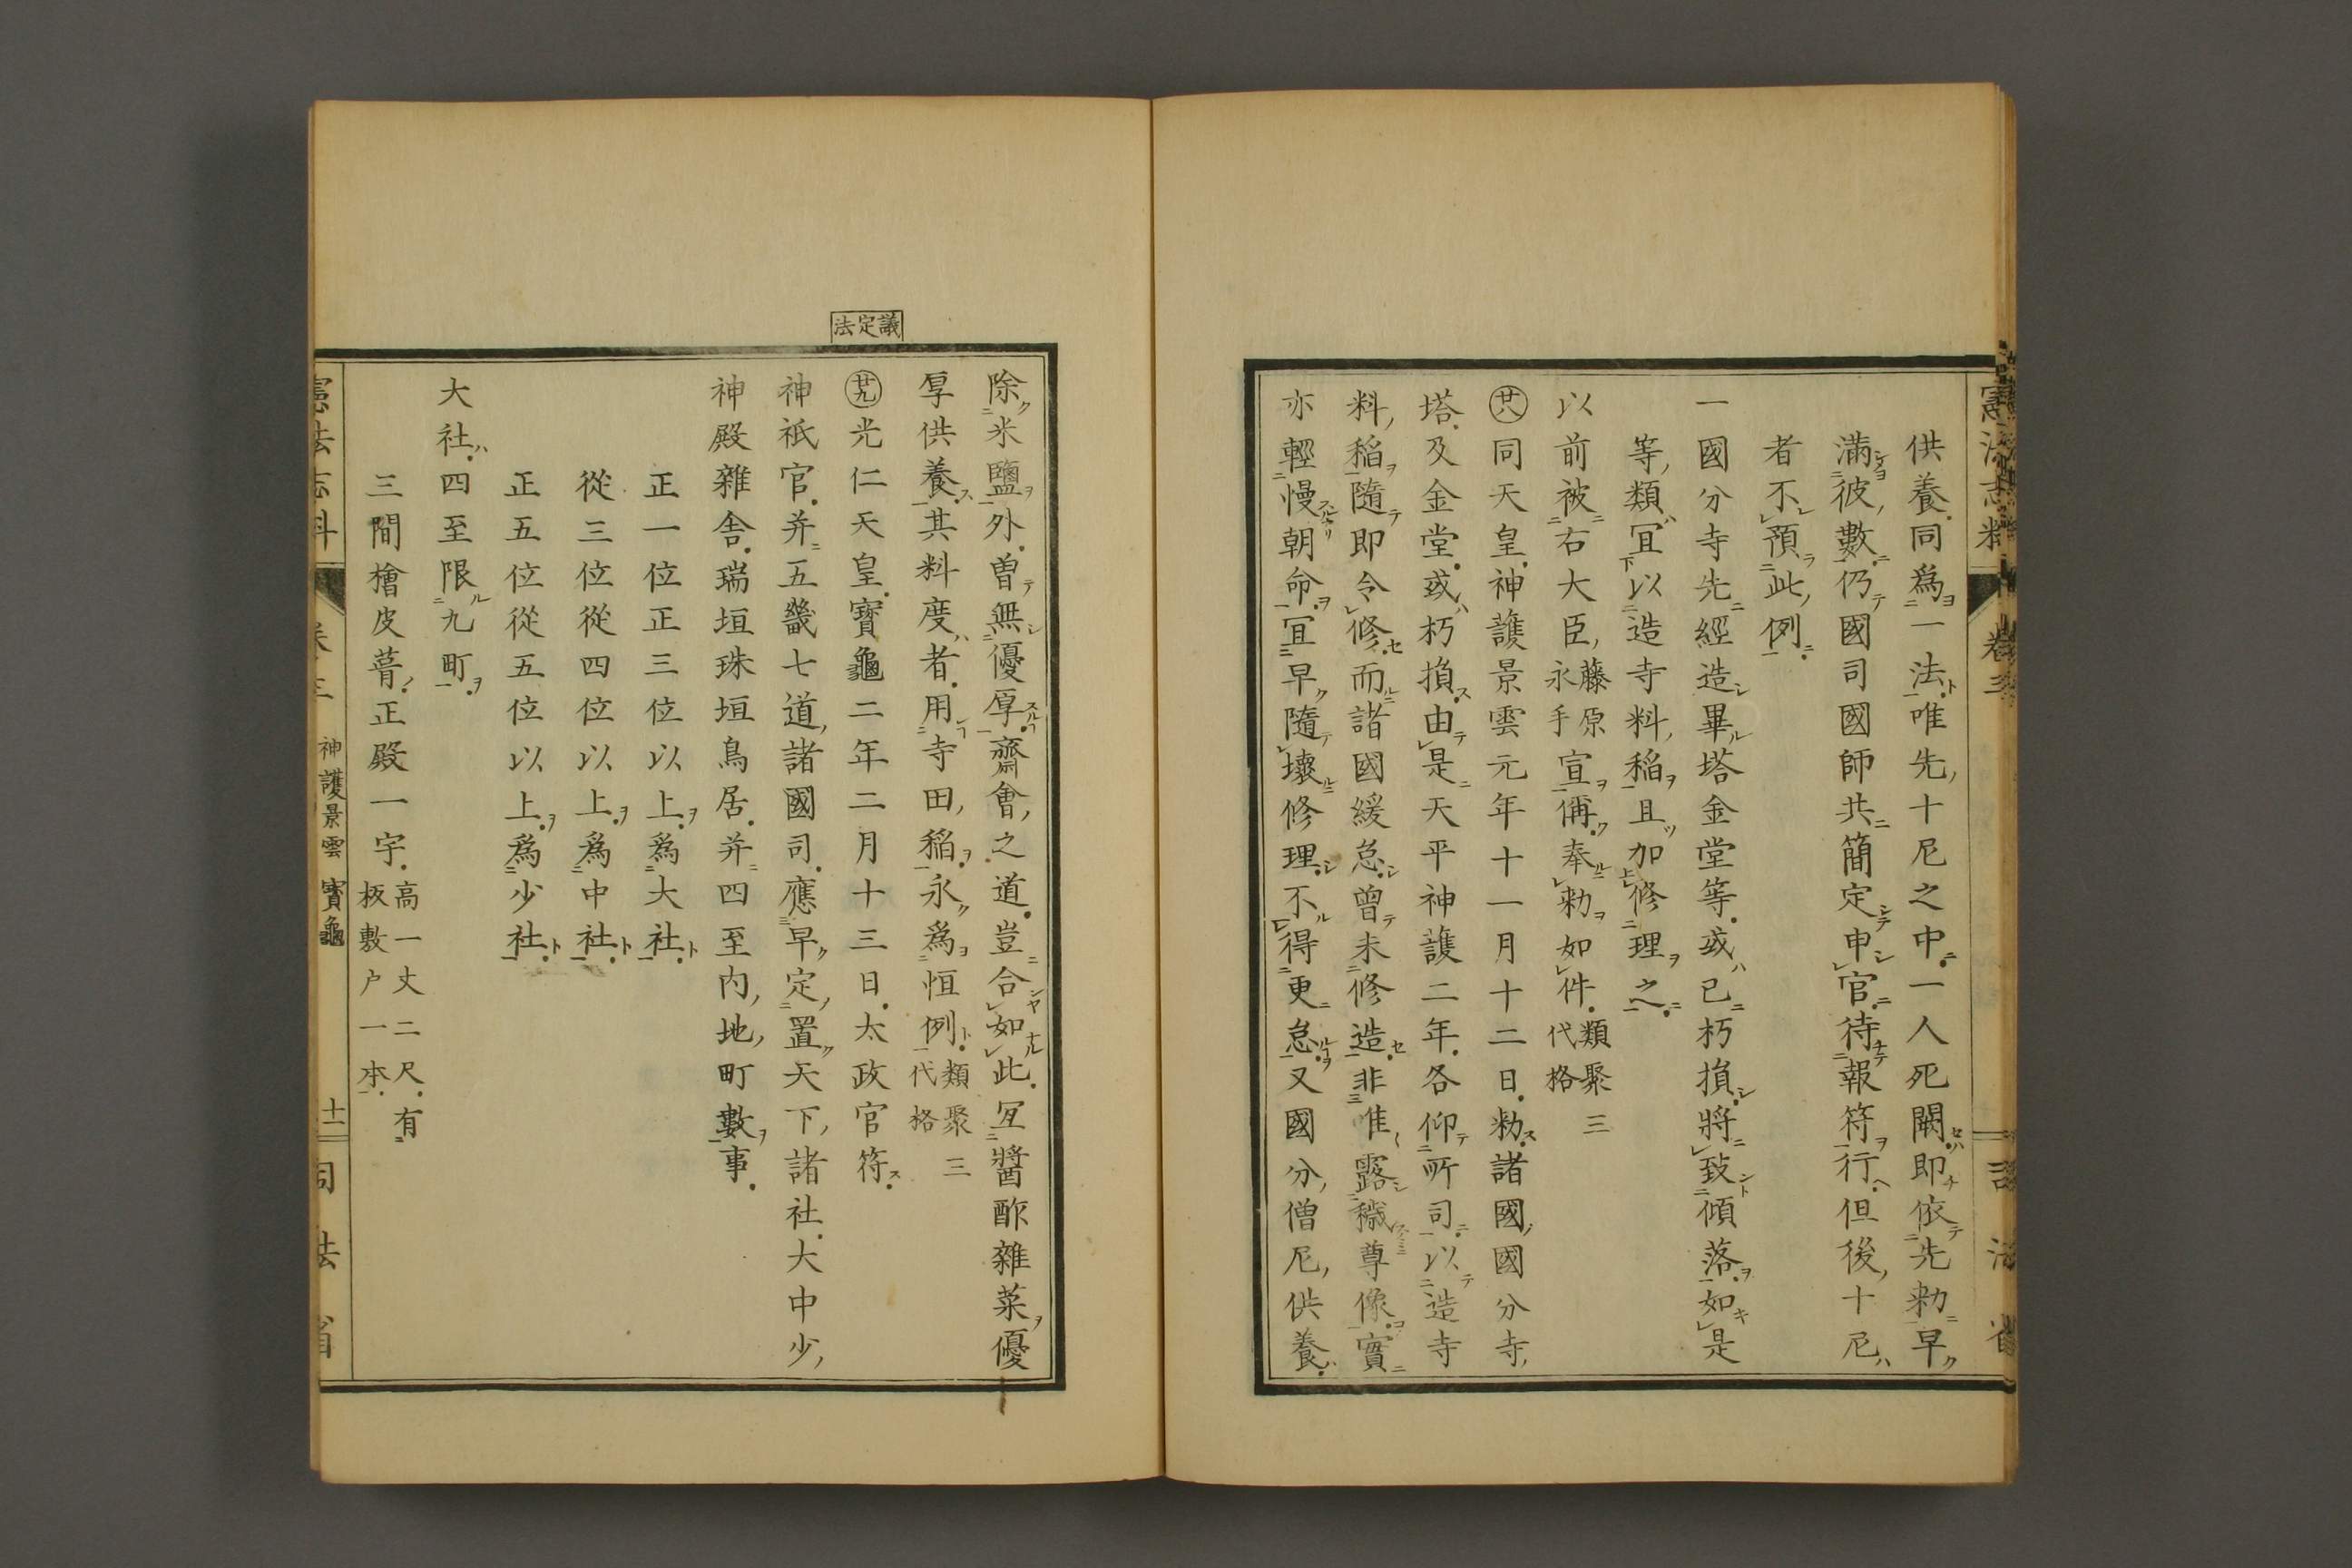 供養同爲一法唯先十尼之中一人死闕即依先勅早
滿彼數仍國司國師共簡定申官待報符行但後十尼
者不預此例
一國分寺先經造畢塔金堂等或已朽損將致傾落如是
等類宜以造寺料稻且加修理之
以前被右大臣藤原永手宣偁奉勅如件類聚三代格
廿八同天皇神護景雲元年十一月十二日勅諸國國分寺
塔及金堂或朽損由是天平神護二年各仰所司以造寺
料稻隨即令修而諸國緩怠曾未修造非唯露穢尊像實
亦輕慢朝命宜早隨壞修理不得更怠又國分僧尼供養
除米鹽外曾無優厚齋會之道豈合如此宜醬酢雜菜優
厚供養其料度者用寺田稻永爲恒例類聚三代格
議定法
廿九光仁天皇寶龜二年二月十三日太政官符
神祇官并五畿七道諸國司應早定置天下諸社大中少
神殿雜舎瑞垣珠垣鳥居并四至内地町數事
正一位正三位以上爲大社
從三位從四位以上爲中社
正五位從五位以上爲少社
大社四至限九町
三間檜皮葺正殿一宇高一丈二尺有板敷戸一本
憲法志料 卷三 神護景雲 寶龜 十一 司法省